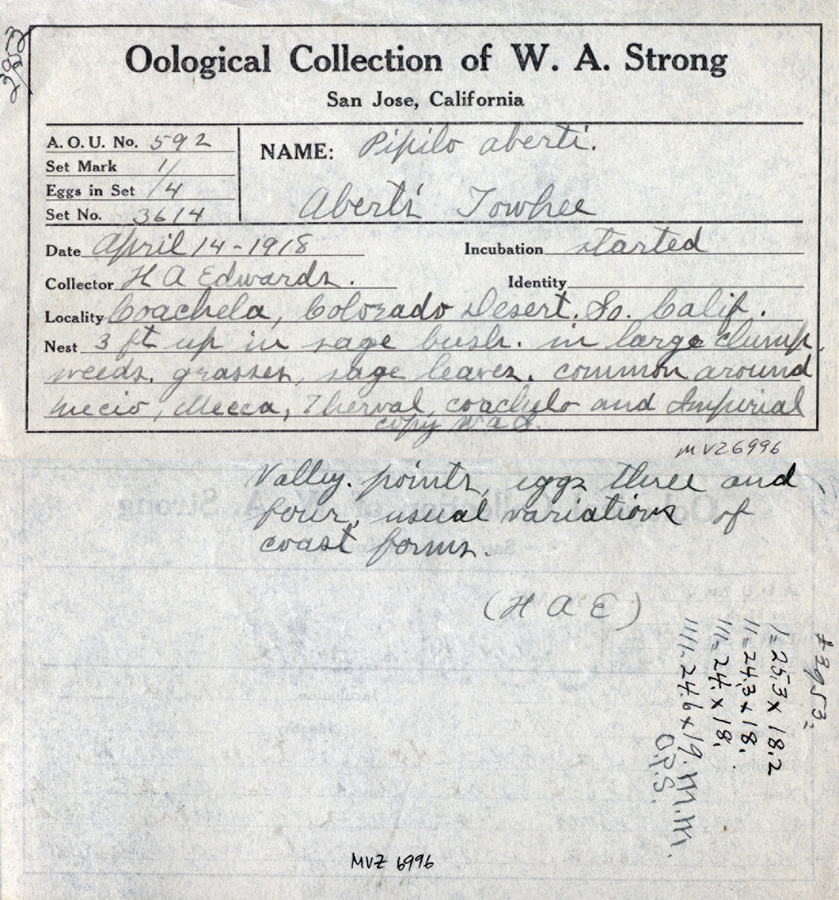 3953
Oological Collection of W. A. Strong
San Jose, California
A. O. U. No. 592
Set Mark 1/
Eggs in Set /4
Set No. 3614
NAME: Pipilo aberti.
Aberti Towhee
Date April 14-1918
Incubation started
Collector H A Edwards.
Identity
Locality Coachela, Colorado Desert. So. Calif.
Nest 3 ft up in sage bush. in large clump,
weeds, grasses, sage leaves. common around
Mecca, Therval, coachelo and Imperial
copy WAS.
MVZ6996
Valley. points, eggs three and
four, usual variations of
coast forms.
(H A E)
1= 25.3 x 18.2
11= 24.3 x 18.
111= 24. x 18.
1111= 24.6 x 19. m.m.
O.P.S.
MVZ 6996